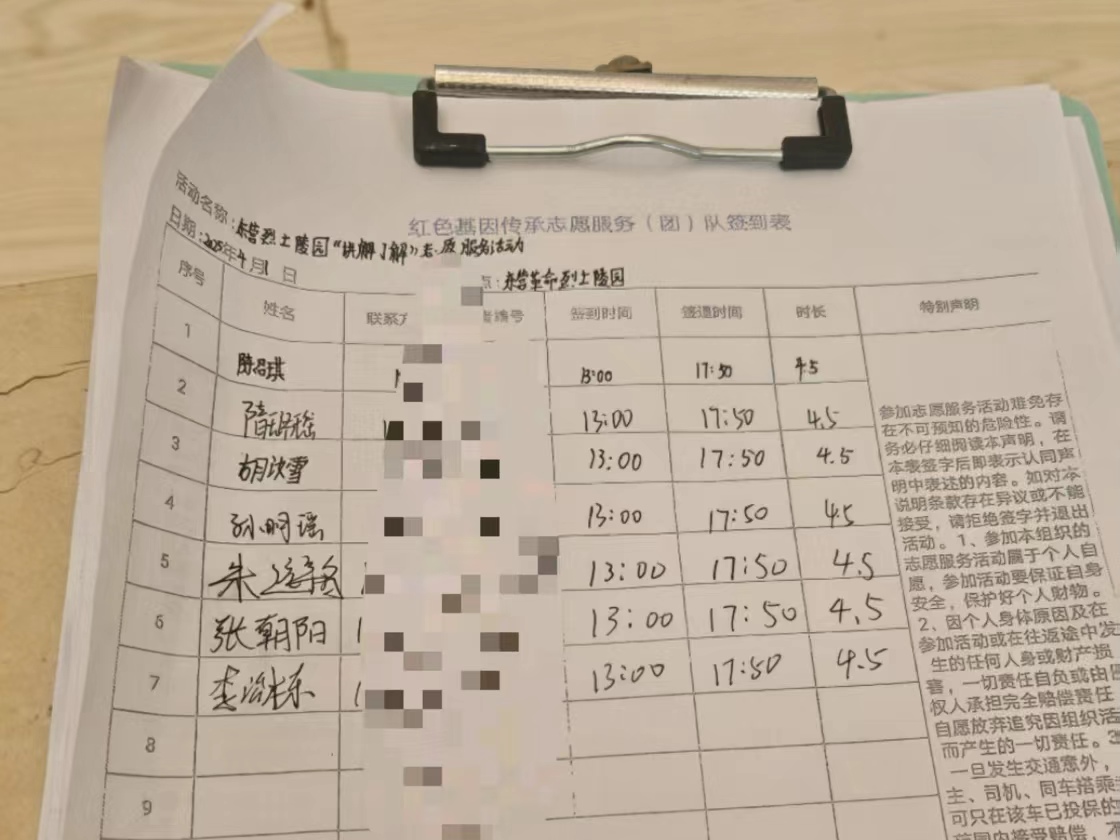 红色基因传承志愿服务（团）队签到表
活动名称：东营烈士陵园“讲解了解”志愿服务活动
日期：2025年4月1日
点：东营革命烈士陵园
序号 姓名 联系方 者编号 签到时间 签退时间 时长 特别声明
1 13:00 17:50 4.5
2 13:00 17:50 4.5
3 胡冰雪 13:00 17:50 4.5
4 孙明瑶 13:00 17:50 4.5
5 13:00 17:50 4.5
6 张朝阳 13:00 17:50 4.5
7 李治东 13:00 17:50 4.5
8
9
参加志愿服务活动难免存
在不可预知的危险性。请
务必仔细阅读本声明，在
本表签字后即表示认同声
明中表述的内容。如对本
说明条款存在异议或不能
接受，请拒绝签字并退出
活动。1、参加本组织的
志愿服务活动属于个人自
愿，参加活动要保证自身
安全，保护好个人财物。
2、因个人身体原因及在
参加活动或在往返途中发
生的任何人身或财产损
害，一切责任自负或由侵
权人承担完全赔偿责任
自愿放弃追究因组织活
而产生的一切责任。3
一旦发生交通意外，
主、司机、同车搭乘
可只在该车已投保的
范围内接受赔偿，不